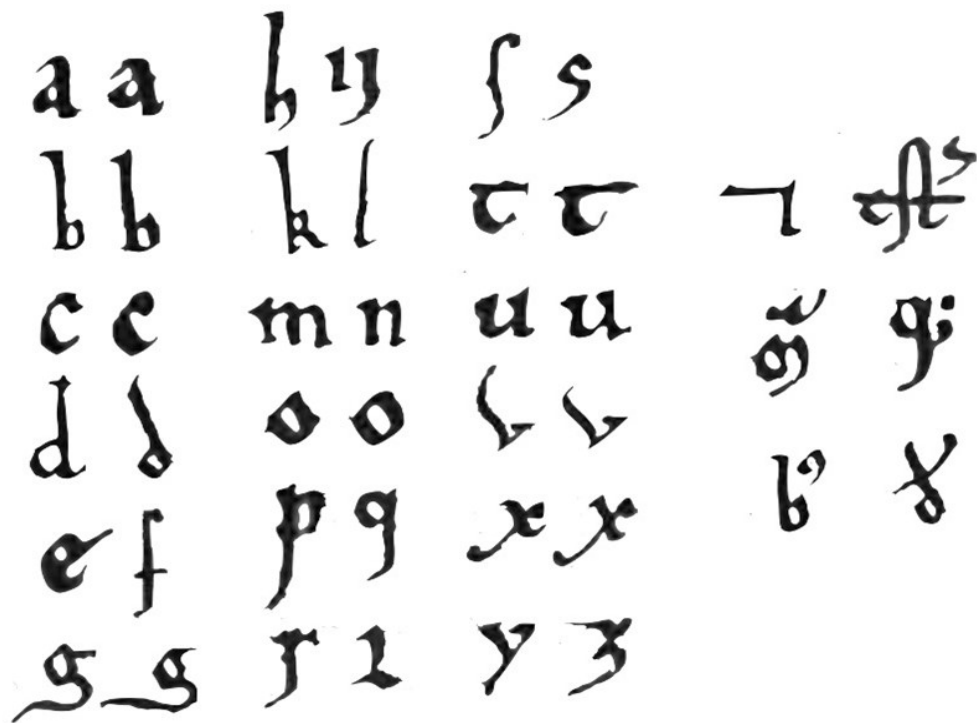 a a
b b
c c
d d
e f
g g
h ij
k l
m n
o o
p q
r ꝛ
ſ s
t t
u u
v v
x x
y z
⁊
q;
bꝰ